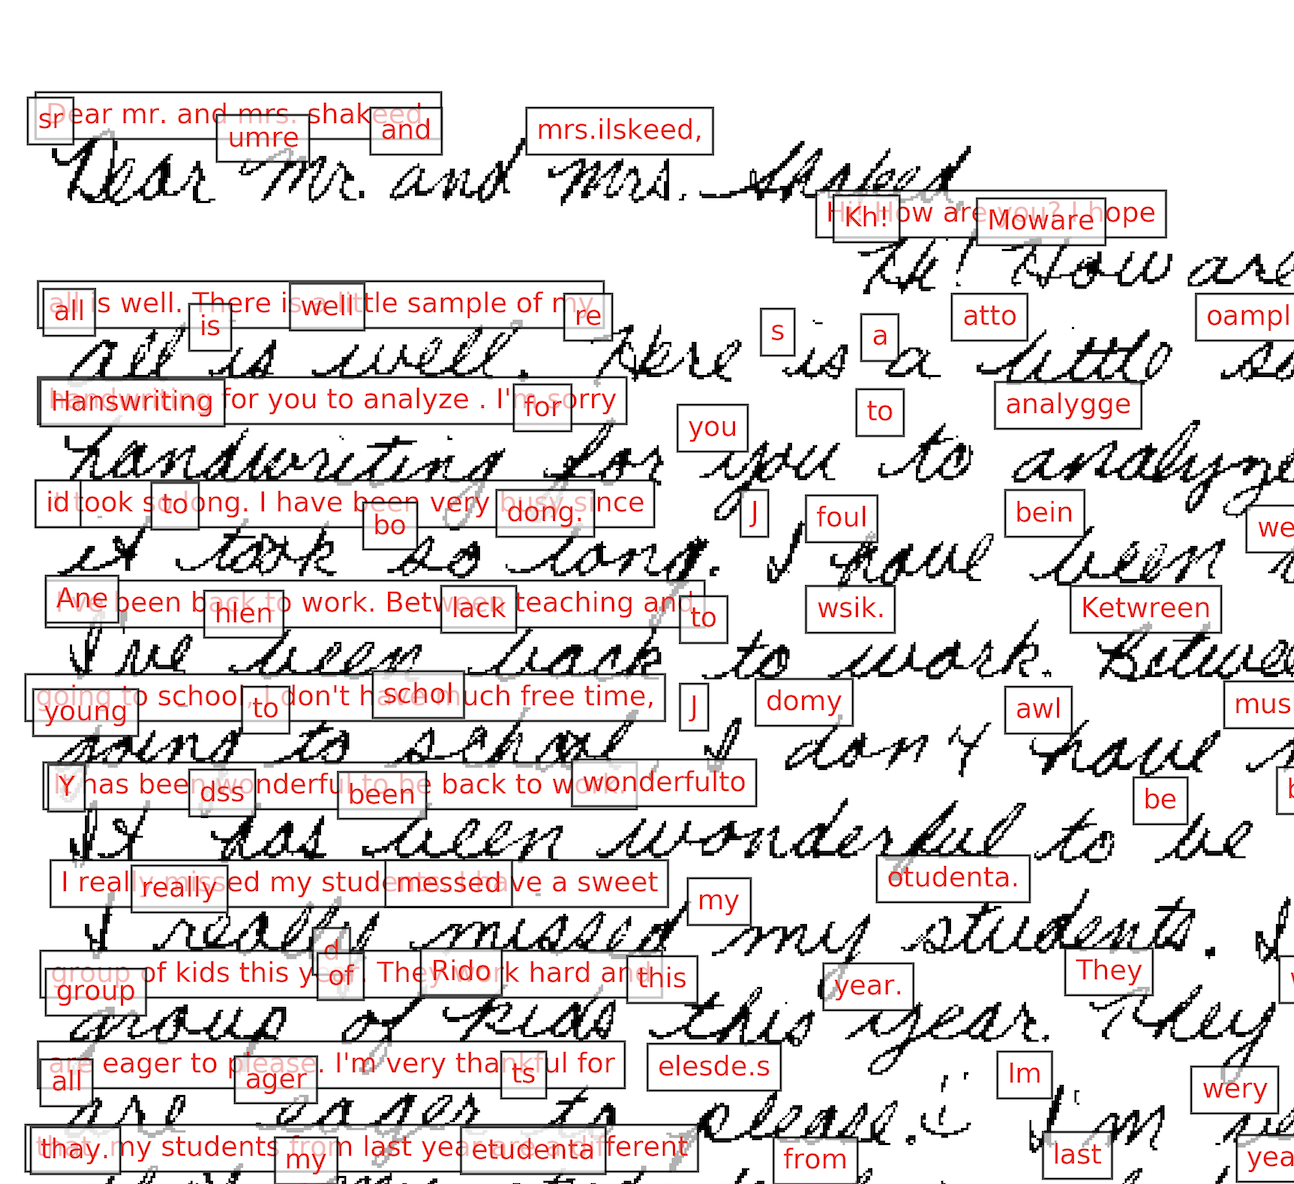 Dear mr. and mrs. shakeed
sr umre and mrs.ilskeed,
Dear Mr. and Mrs. Shaked,
Hi! How are you? I hope
Kh! Moware
Hi! How are
all is well. There is a little sample of my
all is well re s a atto oampl
all is well. Here is a little sa
handwriting for you to analyze . I'm sorry
Hanswriting for you to analygge
handwriting for you to analyze
id took so long. I have been very busy since
to bo dong. J foul bein we
it took so long. I have been
I've been back to work. Between teaching and
Ane hlen lack to wsik. Ketwreen
I've been back to work. Betwee
going to school, I don't have much free time,
young to schol J domy awl mus
going to school, I don't have
Y has been wonderful to be back to work.
dss been wonderfulto be b
It has been wonderful to be
I really missed my students. I have a sweet
really messed my otudenta.
I really missed my students. I
group of kids this year. They work hard and
group d of Rido this year. They
group of kids this year. They
are eager to please. I'm very thankful for
all ager ts elesde.s Im wery
are eager to please. I'm ve
that. my students from last year are a different
thay. my etudenta from last yea